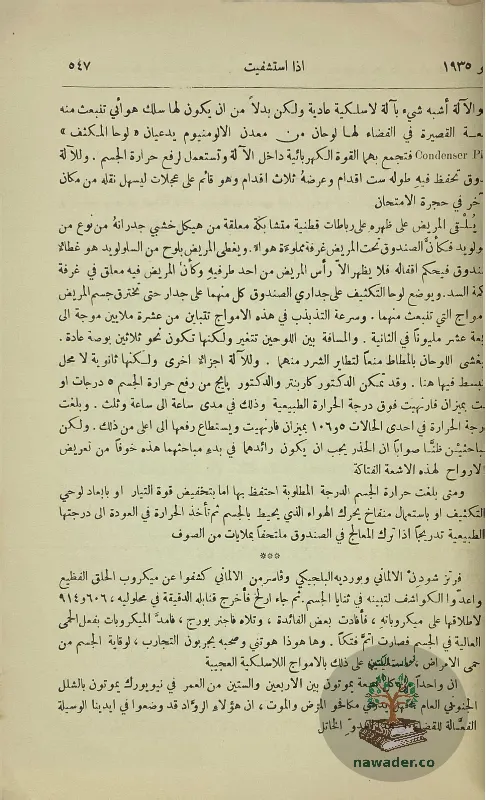 و ١٩٣٥ اذا استشفيت ٥٤٧
والآلة أشبه شيء بآلة لاسلكية عادية ولكن بدلاً من ان يكون لها سلك هوائي تنبعث منه
القصيرة في الفضاء لها لوحان من معدن الالومنيوم يدعيان « لوحا المكثف »
Condenser Pl فتجمع بهما القوة الكهربائية داخل الآلة وتستعمل لرفع حرارة الجسم . وللآلة
دوق تحفظ فيه طوله ست اقدام وعرضه ثلاث اقدام وهو قائم على عجلات ليسهل نقله من مكان
آخر في حجرة الامتحان
يُلقى المريض على ظهره على رباطات قطنية متشابكة معلقة من هيكل خشي جدرانه من نوع من
ولويد فكأن الصندوق تحت المريض غرفة مملوءة هواء . ويغطى المريض بلوح من السلولويد هو غطاء
ندوق فيحكم اقفاله فلا يظهر الا رأس المريض من احد طرفيه وكأن المريض فيه معلق في غرفة
كمة السد . ويوضع لوحا التكثيف على جداري الصندوق كل منهما على جدار حتى تخترق جسم المريض
مواج التي تنبعث منهما . وسرعة التذبذب في هذه الامواج تتباين من عشرة ملايين موجة الى
بعة عشر مليوناً في الثانية . والمسافة بين اللوحين تتغير ولكنها تكون نحو ثلاثين بوصة عادة .
يغشى اللوحان بالمطاط منعاً لتطاير الشرر منهما . وللآلة اجزاء اخرى ولكنها ثانوية لا محل
لبسط فيها هنا . وقد تمكن الدكتور كاربنتر والدكتور پايج من رفع حرارة الجسم ٥ درجات او
ت بميزان فارنهيت فوق درجة الحرارة الطبيعية وذلك في مدى ساعة الى ساعة وثلث . وبلغت
رجة الحرارة في احدى الحالات ١٠٦٫٥ بميزان فارنهيت ويستطاع رفعها الى اعلى من ذلك . ولكن
باحثين ظنا صواباً ان الحذر يجب ان يكون رائدهما في بدء مباحثهما هذه خوفاً من تعريض
الارواح لهذه الاشعة الفتاكة
ومتى بلغت حرارة الجسم الدرجة المطلوبة احتفظ بها اما بتخفيض قوة التيار او بابعاد لوحي
التكثيف او باستعمال منفاخ يحرك الهواء الذي يحيط بالجسم ثم تأخذ الحرارة في العودة الى درجتها
الطبيعية تدريجاً اذا ترك المعالج في الصندوق ملتحفاً بملايات من الصوف
***
فرتز شودن الالماني وبورديه البلجيكي وڤاسرمن الالماني كشفوا عن ميكروب الحلق الفظيع
واعدوا الكواشف لتبينه في ثنايا الجسم . ثم جاء ارلخ فأخرج قنابله الدقيقة في محلوليه ، ٦٠٦ و ٩١٤
لاطلاقها على ميكروباته ، فأفادت بعض الفائدة ، وتلاه فاجنر يورج ، فامد الميكروبات بفعل الحمى
العالية في الجسم فصارت اتم فتكاً . وها هوذا هوتني وصحبه يجربون التجارب ، لوقاية الجسم من
حمى الامراض ، على ذلك بالامواج اللاسلكية العجيبة
ان واحداً من كل يموتون بين الاربعين والستين من العمر في نيويورك يموتون بالشلل
الجنوني العام مكافحو المرض والموت ، ان هؤلاء الرواد قد وضعوا في ايدينا الوسيلة
الفعالة للقضاء الخاتل
nawader.co